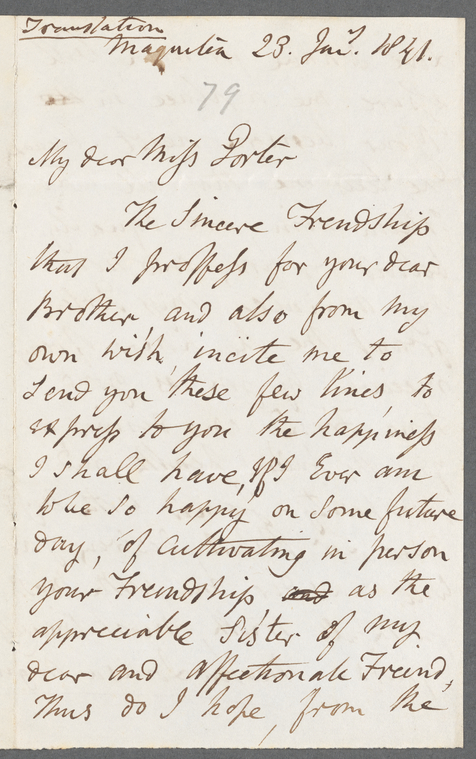 Translation
Maquitia 23. Jany. 1841.
79
My dear Miss Porter
The Sincere Frendship
that I proffess for your dear
Brother, and also from my
own wish, incite me to
Send you these few lines, to
express to you the happiness
I shall have, If I Ever am
to be so happy on some future
day, of cultivating in person
your Freindship and as the
appreciable Sister of my
dear and affectionate Freind,
Thus do I hope, from the